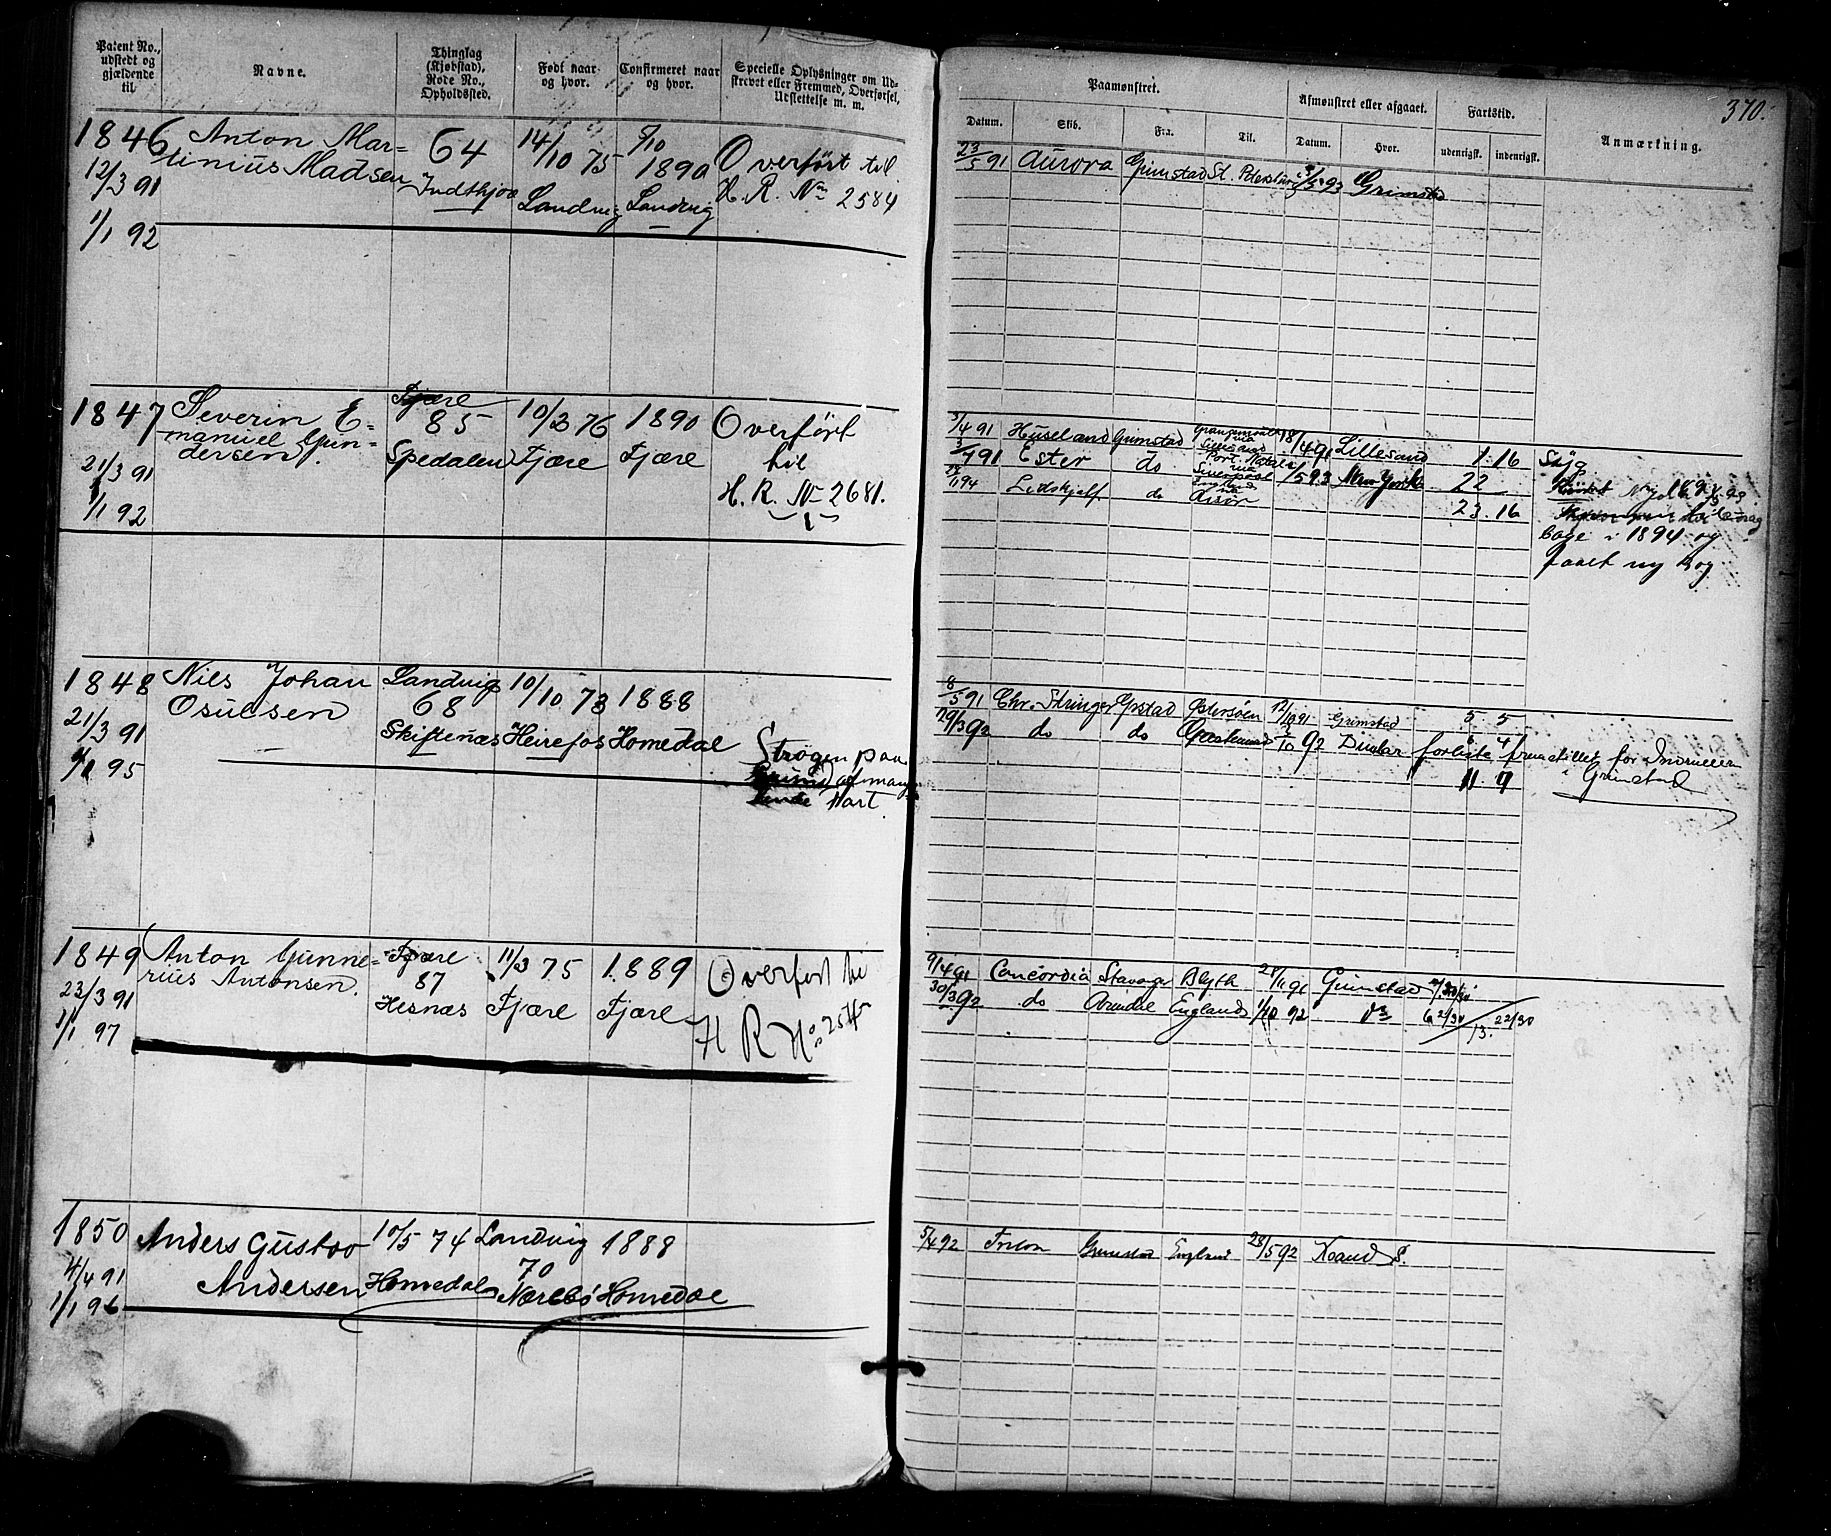 Patent No., udstedt og gjældende til.
Navne.
Thinglag (Kjøbstad), Rode No., Opholdssted.
Født naar og hvor.
Confirmeret naar og hvor.
Specielle Oplysninger om Udskrevet eller Fremmed, Overførsel, Udslettelse m. m.
1846
12/3 91
1/1 92
Anton Mar-
tinius Madsen
64
14/10 75
Landvig
5/10
1890
Landvig
Overført til
H. R. No 2584
1847
21/3 91
1/1 92
Severin E-
manuel Gun-
dersen.
Fjære
85
Spedalen
10/3 76
Fjære
1890
Fjære
Overført
til
H. R. No 2681.
1848
21/3 91
95
Niels Johan
Osulsen
Landvig
68
Skiftenæs
10/10 73
Heirefos
1888
Homedal
Strøgen paa
Grund af mang
lende Fart.
1849
23/3 91
1/1 97
Anton Gunne-
rius Antonsen.
Fjære
87
Hesnæs
11/3 75
Fjære
1889
Fjære
Overført til
H R No 254
1850
4/4 91
1/1 96
Anders Gustav
Andersen
10/5 74
Homedal
Landvig
70
Nærebø
1888
Homedal
370.
Paamønstret.
Afmønstret eller afgaaet.
Fartstid.
Anmærkning.
Datum.
Skib.
Fra.
Til.
Datum.
Hvor.
udenrigsk.
indenrigsk.
23/5 91 Aurora Grimstad St. Petersburg 93 Grimstad
3/4 91 Huseland Grimstad Lillesand 18/4 91 Lillesand 1 16 Syg
91 Ester do Port Natal 93 New York 22
94 Lidskjalf do 23. 16
bage i 1894 og
faaet ny Bog
8/5 91 Chr. Stringer Grstad Østersøen 12/10 91 Grimstad 5 5
19/3 92 do do 10 92 Dunbar 6 4 forliste fremstillet for Inrulleren
11 9 i Grimstad
9/4 91 Concordia Stavanger Blyth 91 Grimstad
30/3 92 do Arendal England 1/10 92 do 6 2/30
13. 22/30
5/4 92 Triton Grimstad England 28/5 92 Xsand S.